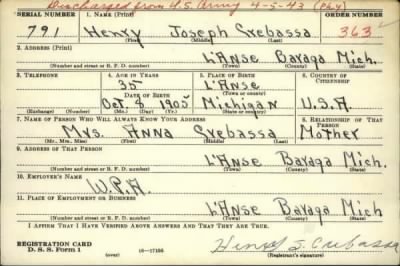 Discharged from U.S. Army 4-5-43 (Phy)
SERIAL NUMBER 1. NAME (Print) ORDER NUMBER
791 Henry Joseph Crebassa 363
(First) (Middle) (Last)
2. ADDRESS (Print)
L'Anse Baraga Mich.
(Number and street or R. F. D. number) (Town) (County) (State)
3. TELEPHONE 4. AGE IN YEARS 5. PLACE OF BIRTH 6. COUNTRY OF CITIZENSHIP
35 L'Anse
(Town or county)
DATE OF BIRTH
Oct. 8 1905 Michigan U.S.A
(Exchange) (Number) (Mo.) (Day) (Yr.) (State or country)
7. NAME OF PERSON WHO WILL ALWAYS KNOW YOUR ADDRESS 8. RELATIONSHIP OF THAT PERSON
Mrs. Anna Crebassa Mother
(Mr., Mrs., Miss) (First) (Middle) (Last)
9. ADDRESS OF THAT PERSON
L'Anse Baraga Mich.
(Number and street or R. F. D. number) (Town) (County) (State)
10. EMPLOYER'S NAME
W.P.A.
11. PLACE OF EMPLOYMENT OR BUSINESS
L'Anse Baraga Mich
(Number and street or R. F. D. number) (Town) (County) (State)
I AFFIRM THAT I HAVE VERIFIED ABOVE ANSWERS AND THAT THEY ARE TRUE.
REGISTRATION CARD
D. S. S. Form 1 (over) 16-17105 Henry J. Crebassa
(Registrant's signature)